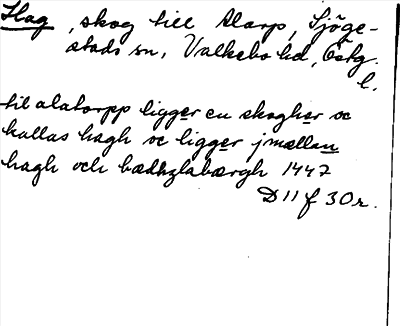 Hag, skog till Alarp, Sjöge-
stads sn, Valkebo hd, Östg.
l.
til alatorpp ligger en skogher oc
kallas hagh oc ligger jmællan
hagh och bædhzlabærgh 1447
D 11 f 30r.